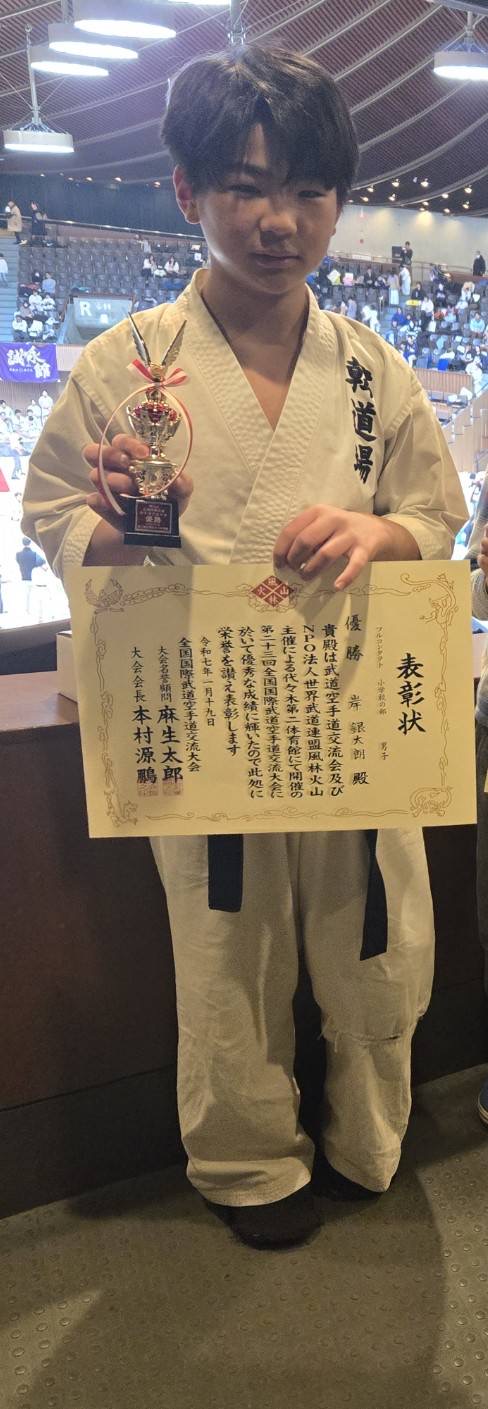 表彰状
フルコンタクト 小学数の部 男子
優勝 岸 銀大朗 殿
貴殿は武道空手道交流会及び
NPO法人世界武道連盟風林火山
主催による代々木第二体育館にて開催の
第二十三回全国国際武道空手道交流大会に
於いて優秀な成績に輝いたので此処に
栄誉を讃え表彰します
令和七年一月十九日
全国国際武道空手道交流大会
大会名誉顧問 麻生太郎
大会会長 本村源鵬
風林火山
道場
優勝
誠永館
R